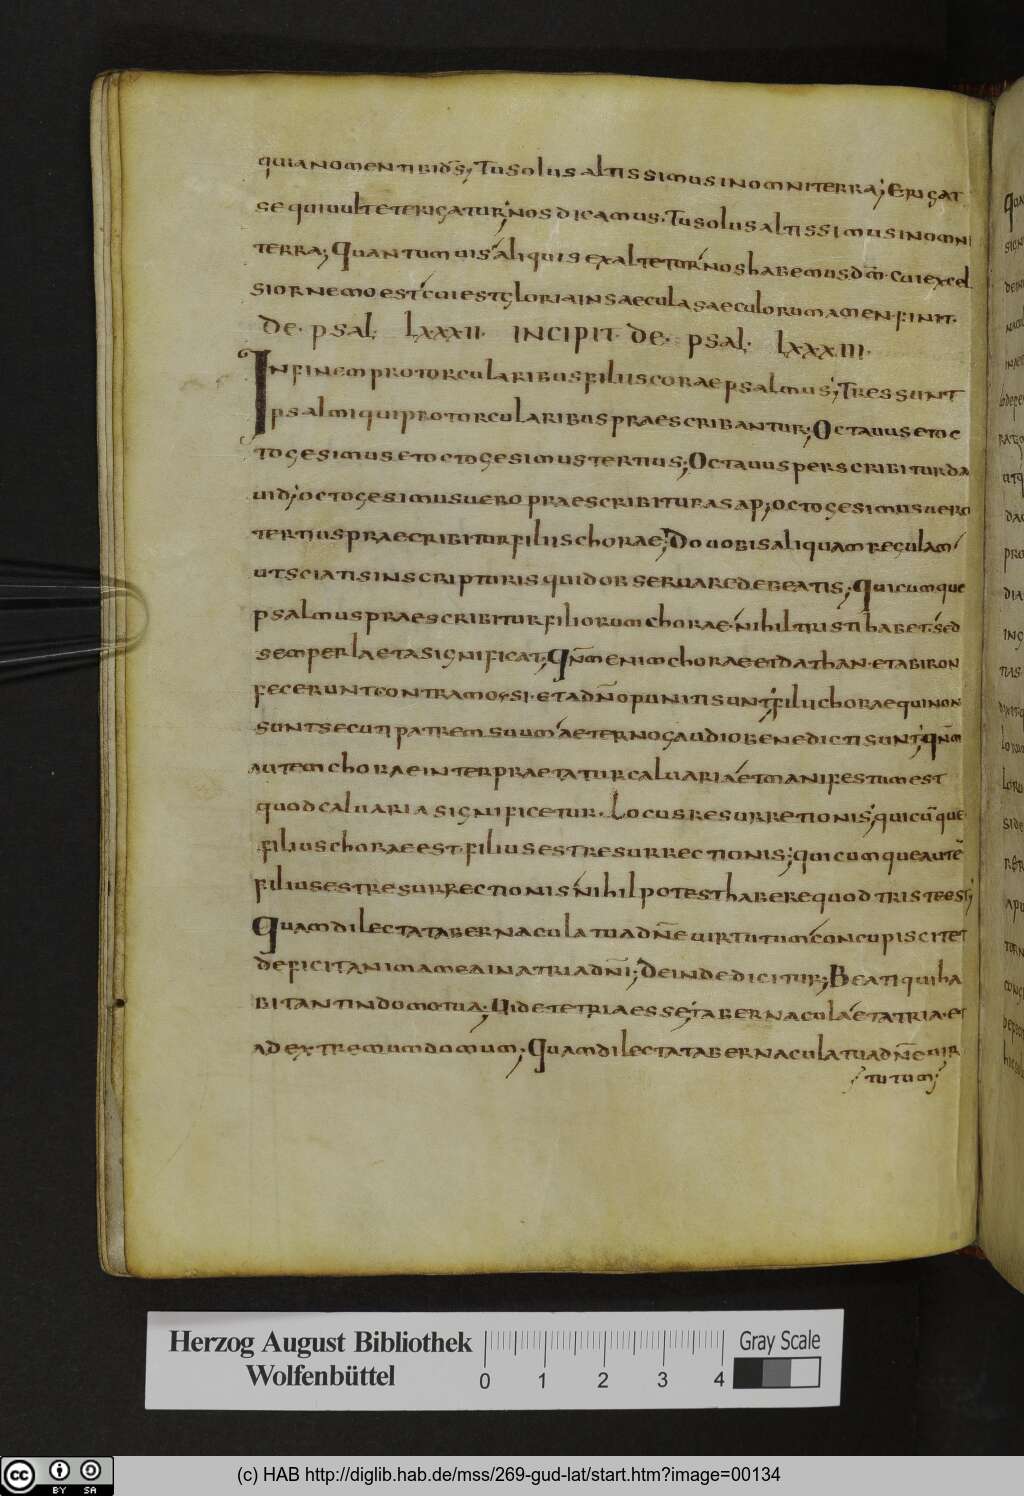 quia nomen tibi dn̄s; Tu solus altissimus in omni terra; Erigat
se qui uult et erigatur; nos dicamus. Tu solus altissimus in omni
terra; Quantum uis aliquis exaltetur nos habemus dm̄. cui excel
sior nemo est cui est gloria in saecula saeculorum amen. finit.
De. psal. lxxxii. incipit de. psal. lxxxiii.
In finem pro torcularibus filiis corae psalmus; Tres sunt
psalmi qui pro torcularibus praescribantur; Octauus et oc
togesimus et octogesimus tertius; Octauus perscribitur da
uid; octogesimus uero praescribitur asap; octogesimus uero
tertius praecribitur filiis chorae; Do uobis aliquam regulam
ut sciatis in scripturis quid obseruare debeatis; Quicumque
psalmus praescribitur filiorum chorae. nihil tristi habet. sed
semper laeta significat; Qn̄m enim chorae et dathan. et abiron
fecerunt contra mosi. et a dn̄o puniti sunt; filii chorae qui non
sunt secuti patrem suum aeterno gaudio benedicti sunt; qn̄m
autem chorae interpraetatur caluaria et manifestum est
quod caluaria significetur. Locus resurretionis; quicū que
filius chorae est. filius est resurrectionis; quicumque autē
filius est resurrectionis nihil potest habere quod triste est;
Quam dilecta tabernacula tua dn̄e uirtutum concupiscit et
deficit anima mea in atria dn̄i; Deinde dicitur; Beati qui ha
bitant in domo tua; Uidete tria esse; tabernacula et atria. et
ad extremum domum; Quam dilecta tabernacula tua dn̄e uir
tutum;
Herzog August Bibliothek
Wolfenbüttel
0 1 2 3 4
Gray Scale
cc BY SA
(c) HAB http://diglib.hab.de/mss/269-gud-lat/start.htm?image=00134